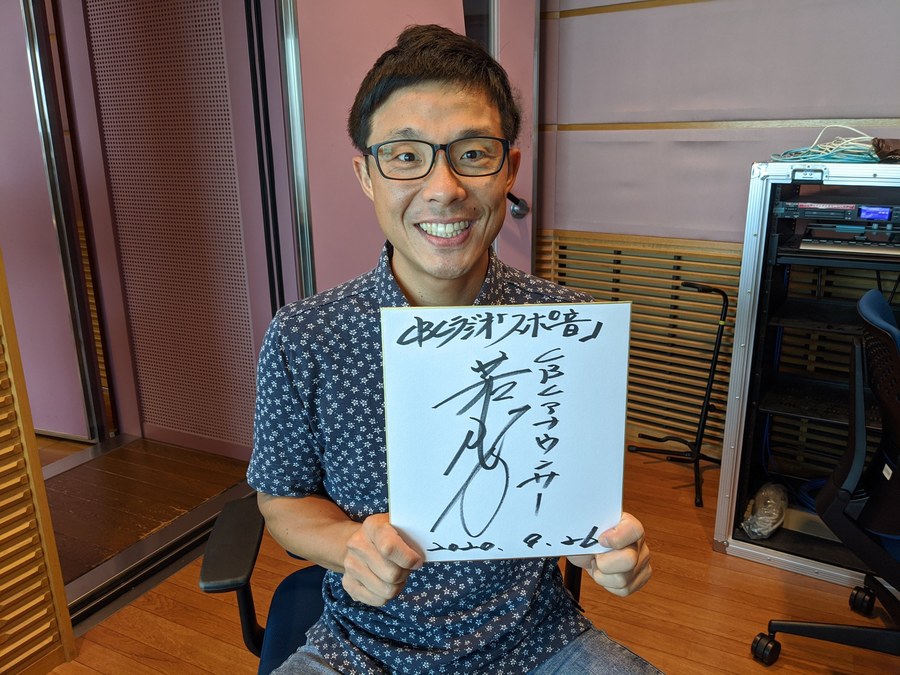 CBCラジオ「スポ音」
CBCアナウンサー
2020. 9. 26